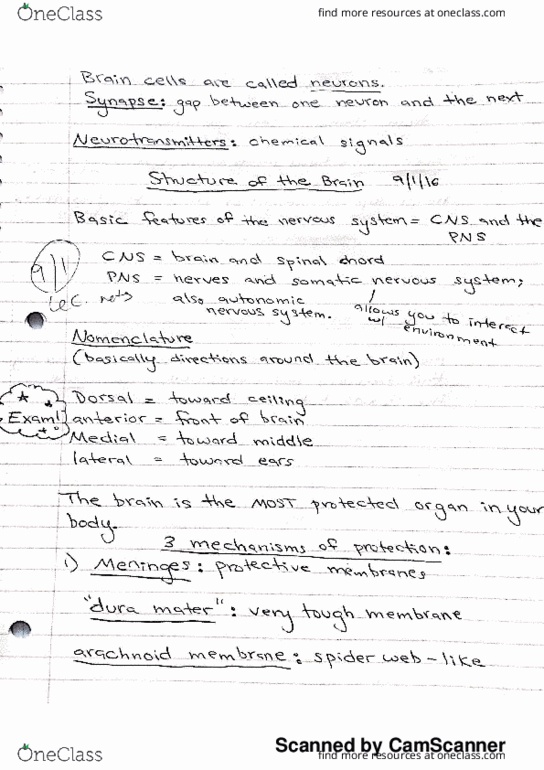 OneClass
find more resources at oneclass.com
Brain cells are called neurons.
Synapse: gap between one neuron and the next
Neurotransmitters: chemical signals
Structure of the Brain 9/1/16
Basic features of the nervous system = CNS and the
PNS
9/1
Lec. nots
CNS = brain and spinal chord
PNS = nerves and somatic nervous system;
also autonomic
nervous system.
allows you to interact
w/ environment
Nomenclature
(basically directions around the brain)
Exam!
Dorsal = toward ceiling
anterior = front of brain
Medial = toward middle
lateral = toward ears
The brain is the MOST protected organ in your
body.
3 mechanisms of protection:
1) Meninges: protective membranes
"dura mater": very tough membrane
arachnoid membrane: spider web-like
Scanned by CamScanner
OneClass
find more resources at oneclass.com